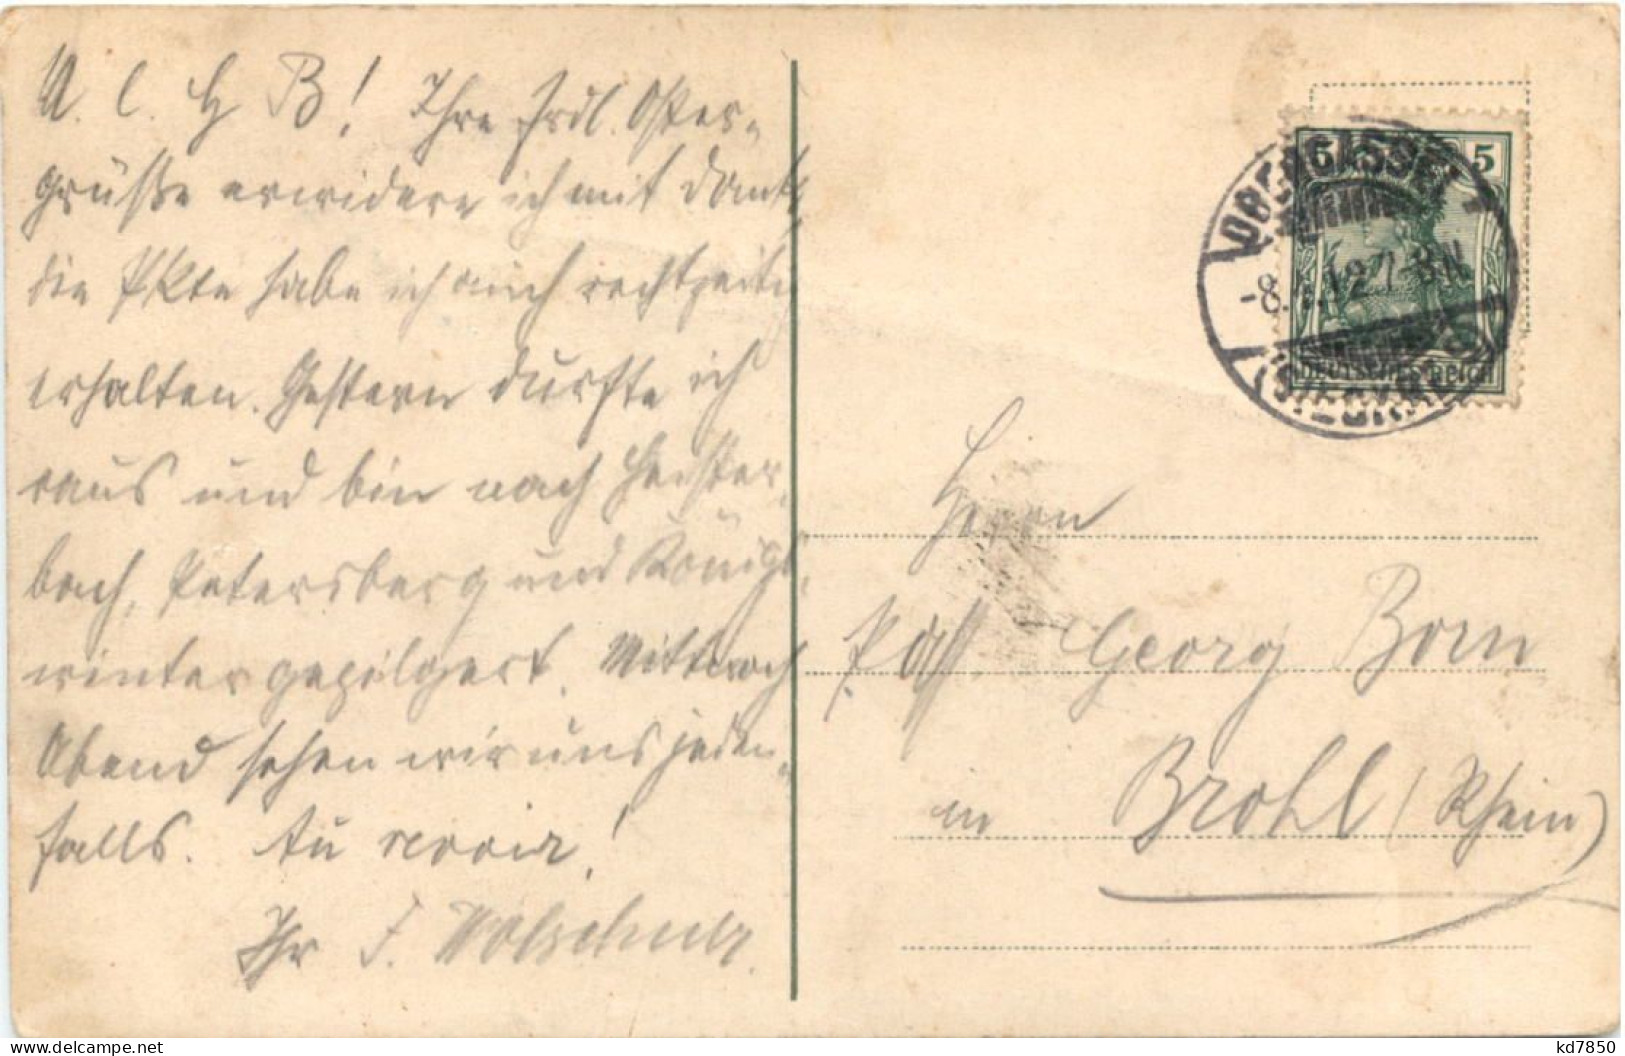 M. l. H. B! Ihre frdl. Oster-
grüße erwidere ich mit Dank,
die Pkte habe ich auch rechtzeitig
erhalten. Gestern durfte ich
raus und bin nach Heister-
bach, Petersberg und Königs-
winter gepilgert. Mittwoch
Abend sehen wir uns jeden-
falls. Au revoir!
Ihr F.
OBERCASSEL
5 5
-8.4.12.7-8N
DEUTSCHES REICH
(SIEGKR.)
Herrn
Georg Born
in Brohl (Rhein)
kd7850